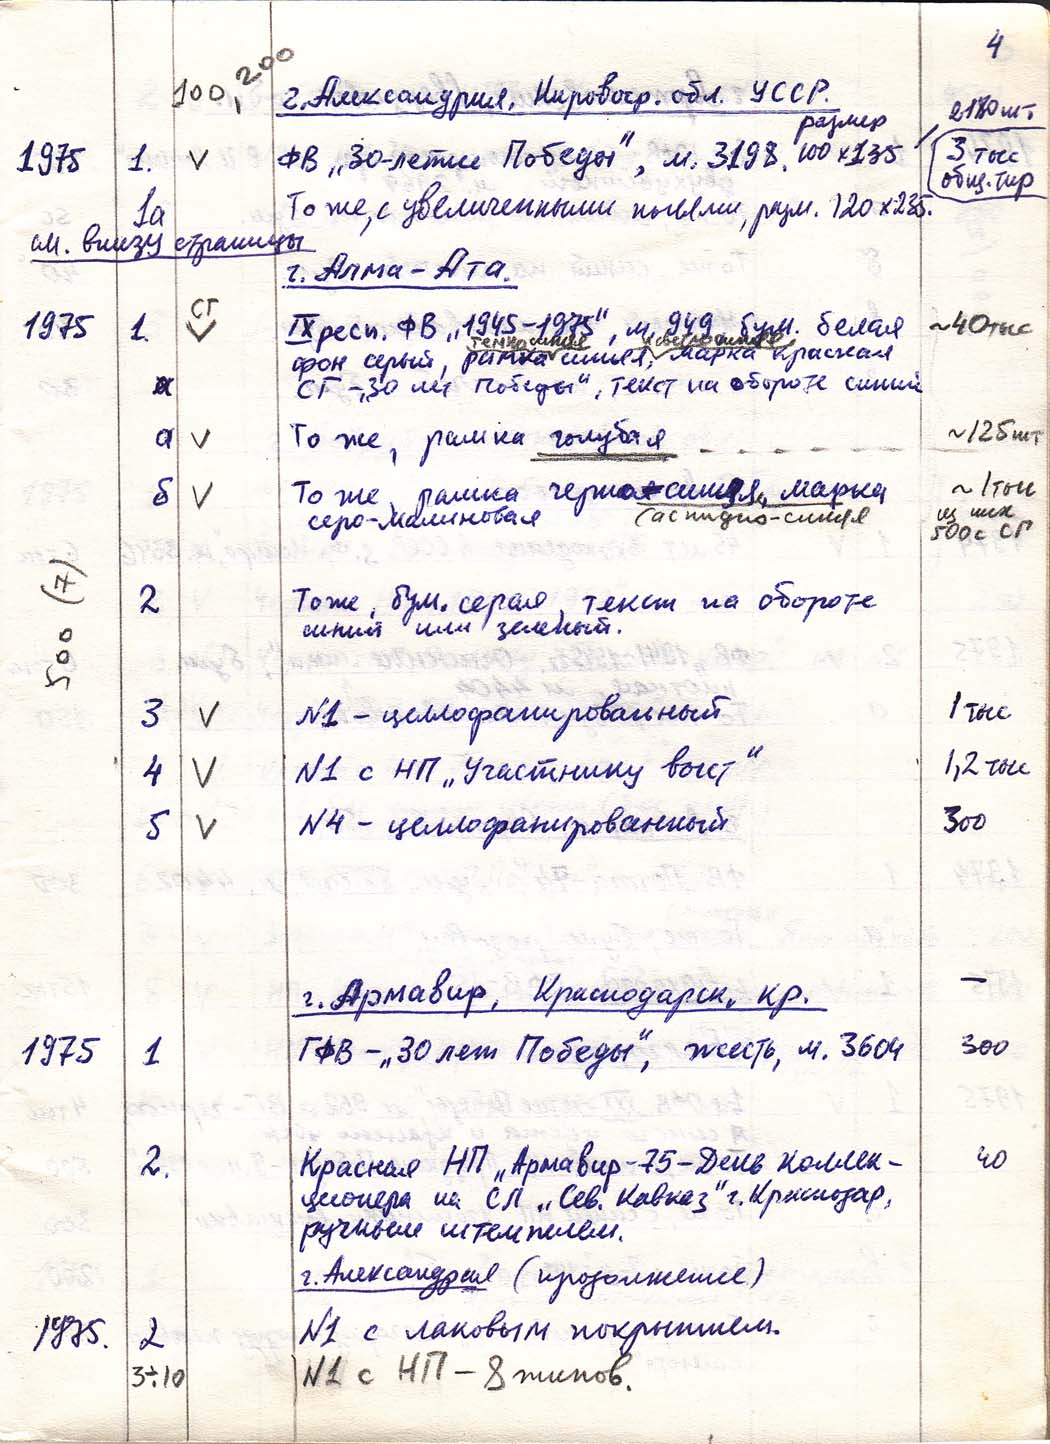 4
100, 200
г. Александрия, Кировогр. обл. УССР.
размер
2180 шт
1975 1. V ФВ „30-летие Победы", м. 3198. 100х135
3 тыс
общ. тир
1а То же, с увеличенными полями, разм. 120х235.
см. внизу страницы
г. Алма-Ата.
СГ
1975 1. V IX респ. ФВ „1945-1975", м. 949 бум. белая ~40тыс
темно-синяя и светло-синяя
фон серый, рамка синяя, марка красная
СГ - „30 лет Победы", текст на обороте синий
а V То же, рамка голубая - - - - - - - ~125шт
б V То же, рамка черно-синяя, марка ~1тыс
серо-малиновая (аспидно-синяя
из них
500 с СГ
500 (7)
2 То же, бум. серая, текст на обороте
синий или зеленый.
3 V N1 - целлофанированный 1 тыс
4 V N1 с НП „Участнику выст" 1,2 тыс
5 V N4 - целлофанированный 300
г. Армавир, Краснодарск. кр. —
1975 1 ГФВ - „30 лет Победы", жесть, м. 3604 300
2. Красная НП „Армавир-75-День коллек- 40
ционера на СЛ „Сев. Кавказ" г. Краснодар,
ручным штемпелем.
г. Александрия (продолжение)
1975. 2 N1 с лаковым покрытием.
3÷10 N1 с НП - 8 типов.